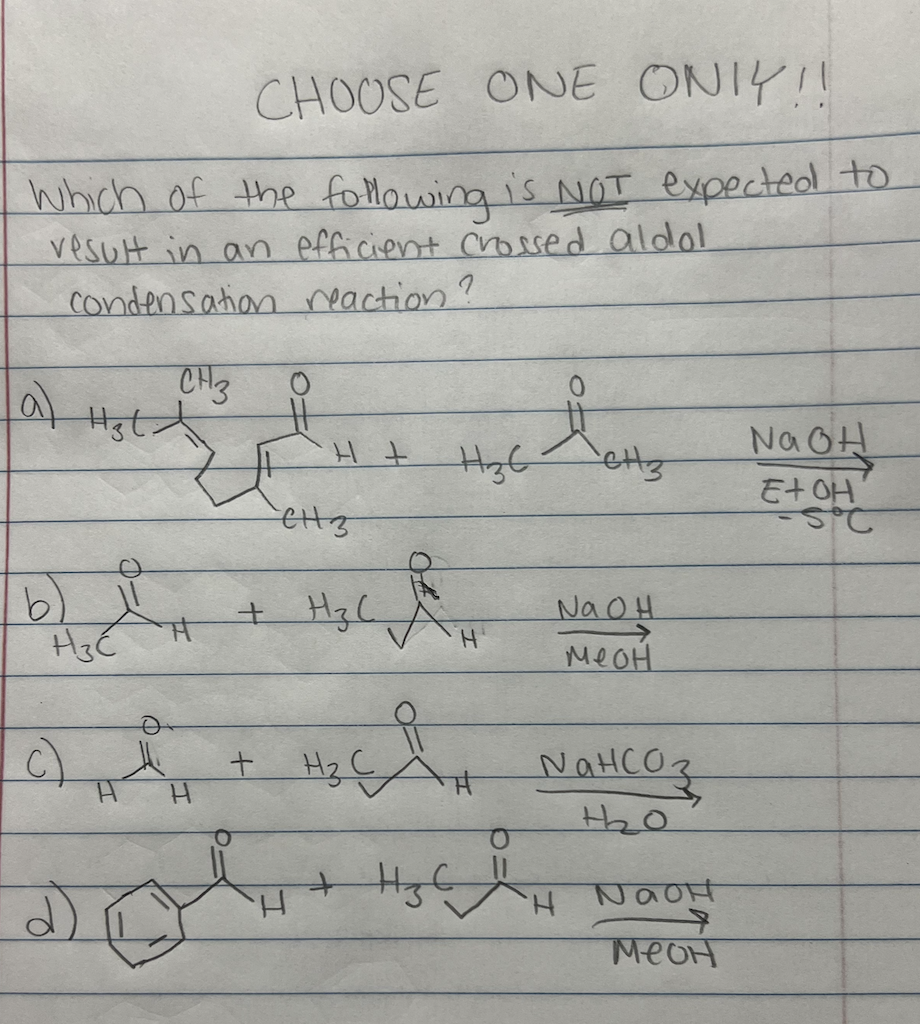 CHOOSE ONE ONLY!!
Which of the following is NOT expected to
result in an efficient crossed aldol
condensation reaction?
a) H3C CH3 O H CH3 + H3C O CH3 NaOH
EtOH
-5°C
b) H3C O H + H3C O H NaOH
MeOH
c) H O H + H3C O H NaHCO3
H2O
d) O H + H3C O H NaOH
MeOH